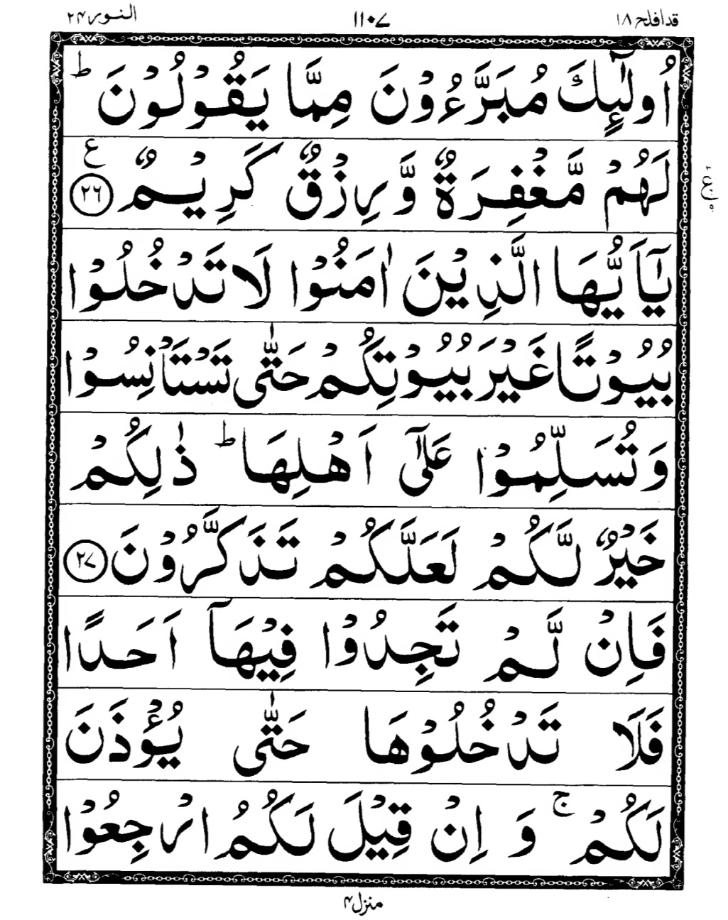 قد افلح ۱۸ ۱۱۰۷ النور ۲۴
اُولٰٓئِكَ مُبَرَّءُوْنَ مِمَّا يَقُوْلُوْنَ ؕ
لَهُمْ مَّغْفِرَةٌ وَّرِزْقٌ كَرِيْمٌ ﴿۲۶﴾ ع
يٰۤاَيُّهَا الَّذِيْنَ اٰمَنُوْا لَا تَدْخُلُوْا
بُيُوْتًا غَيْرَ بُيُوْتِكُمْ حَتّٰى تَسْتَاْنِسُوْا
وَتُسَلِّمُوْا عَلٰٓى اَهْلِهَا ؕ ذٰلِكُمْ
خَيْرٌ لَّكُمْ لَعَلَّكُمْ تَذَكَّرُوْنَ ﴿۲۷﴾
فَاِنْ لَّمْ تَجِدُوْا فِيْهَاۤ اَحَدًا
فَلَا تَدْخُلُوْهَا حَتّٰى يُؤْذَنَ
لَكُمْ ۚ وَ اِنْ قِيْلَ لَكُمُ ارْجِعُوْا
منزل ۴